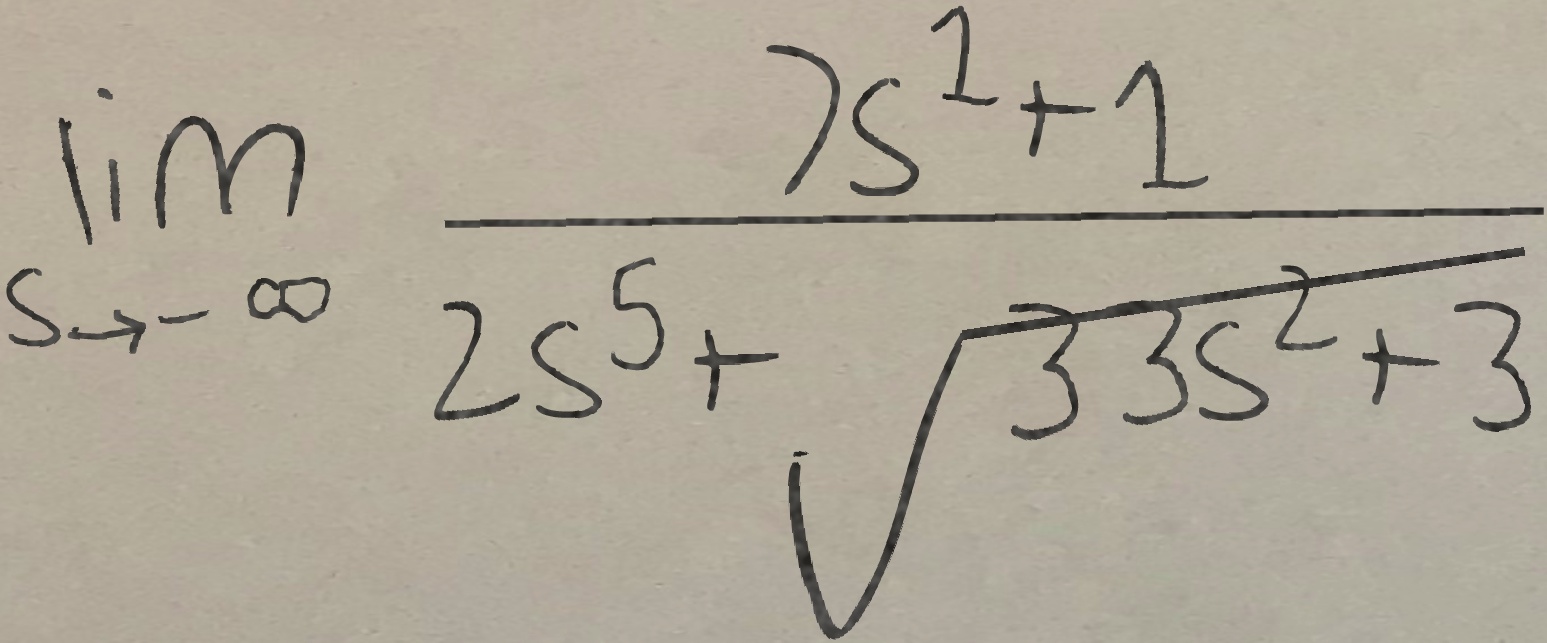 \lim_{s \to -\infty} \frac{7s^1+1}{2s^5+\sqrt{33s^2+3}}